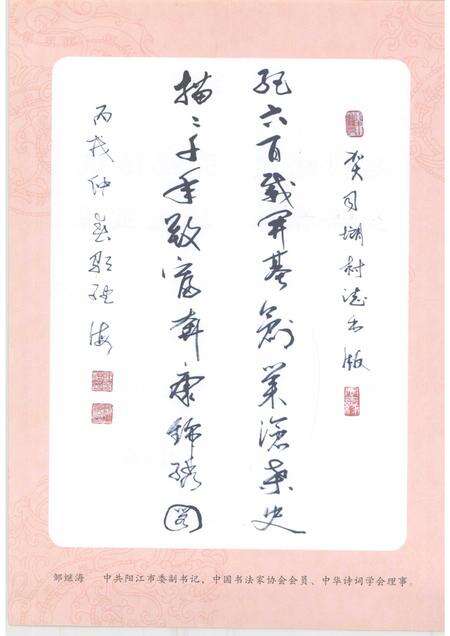 贺 村志出版
纪六百载开基創業滄桑史
描二千年致富奔康锦绣图
丙戌仲春邹继海
邹继海 中共阳江市委副书记，中国书法家协会会员、中华诗词学会理事。